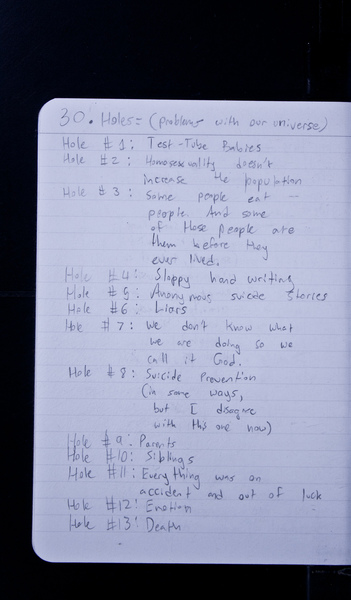 30. Holes= (problems with our universe)
Hole #1: Test-Tube Babies
Hole #2: Homosexuality doesn't
increase the population
Hole #3: Some people eat
people. And some
of those people ate
them before they
ever lived.
Hole #4: Sloppy hand writing
Hole #5: Anonymous suicide stories
Hole #6: Liars
Hole #7: We don't know what
we are doing so we
call it God.
Hole #8: Suicide Prevention
(in some ways,
but I disagree
with this one now)
Hole #9: Parents
Hole #10: Siblings
Hole #11: Everything was on
accident and out of luck
Hole #12: Emotion
Hole #13: Death